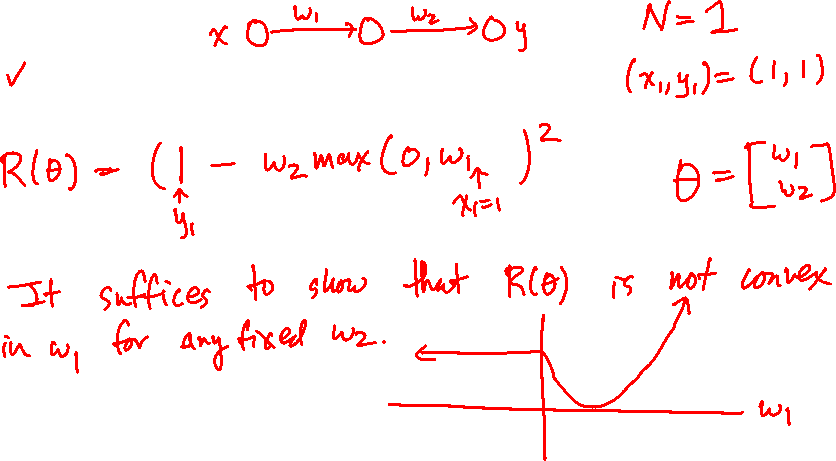 x w₁ w₂ y N = 1
✓ (x₁, y₁) = (1, 1)
R(θ) = (1 - w₂ max(0, w₁ )² θ = [w₁ w₂]
y₁ x₁=1
It suffices to show that R(θ) is not convex
in w₁ for any fixed w₂.
w₁